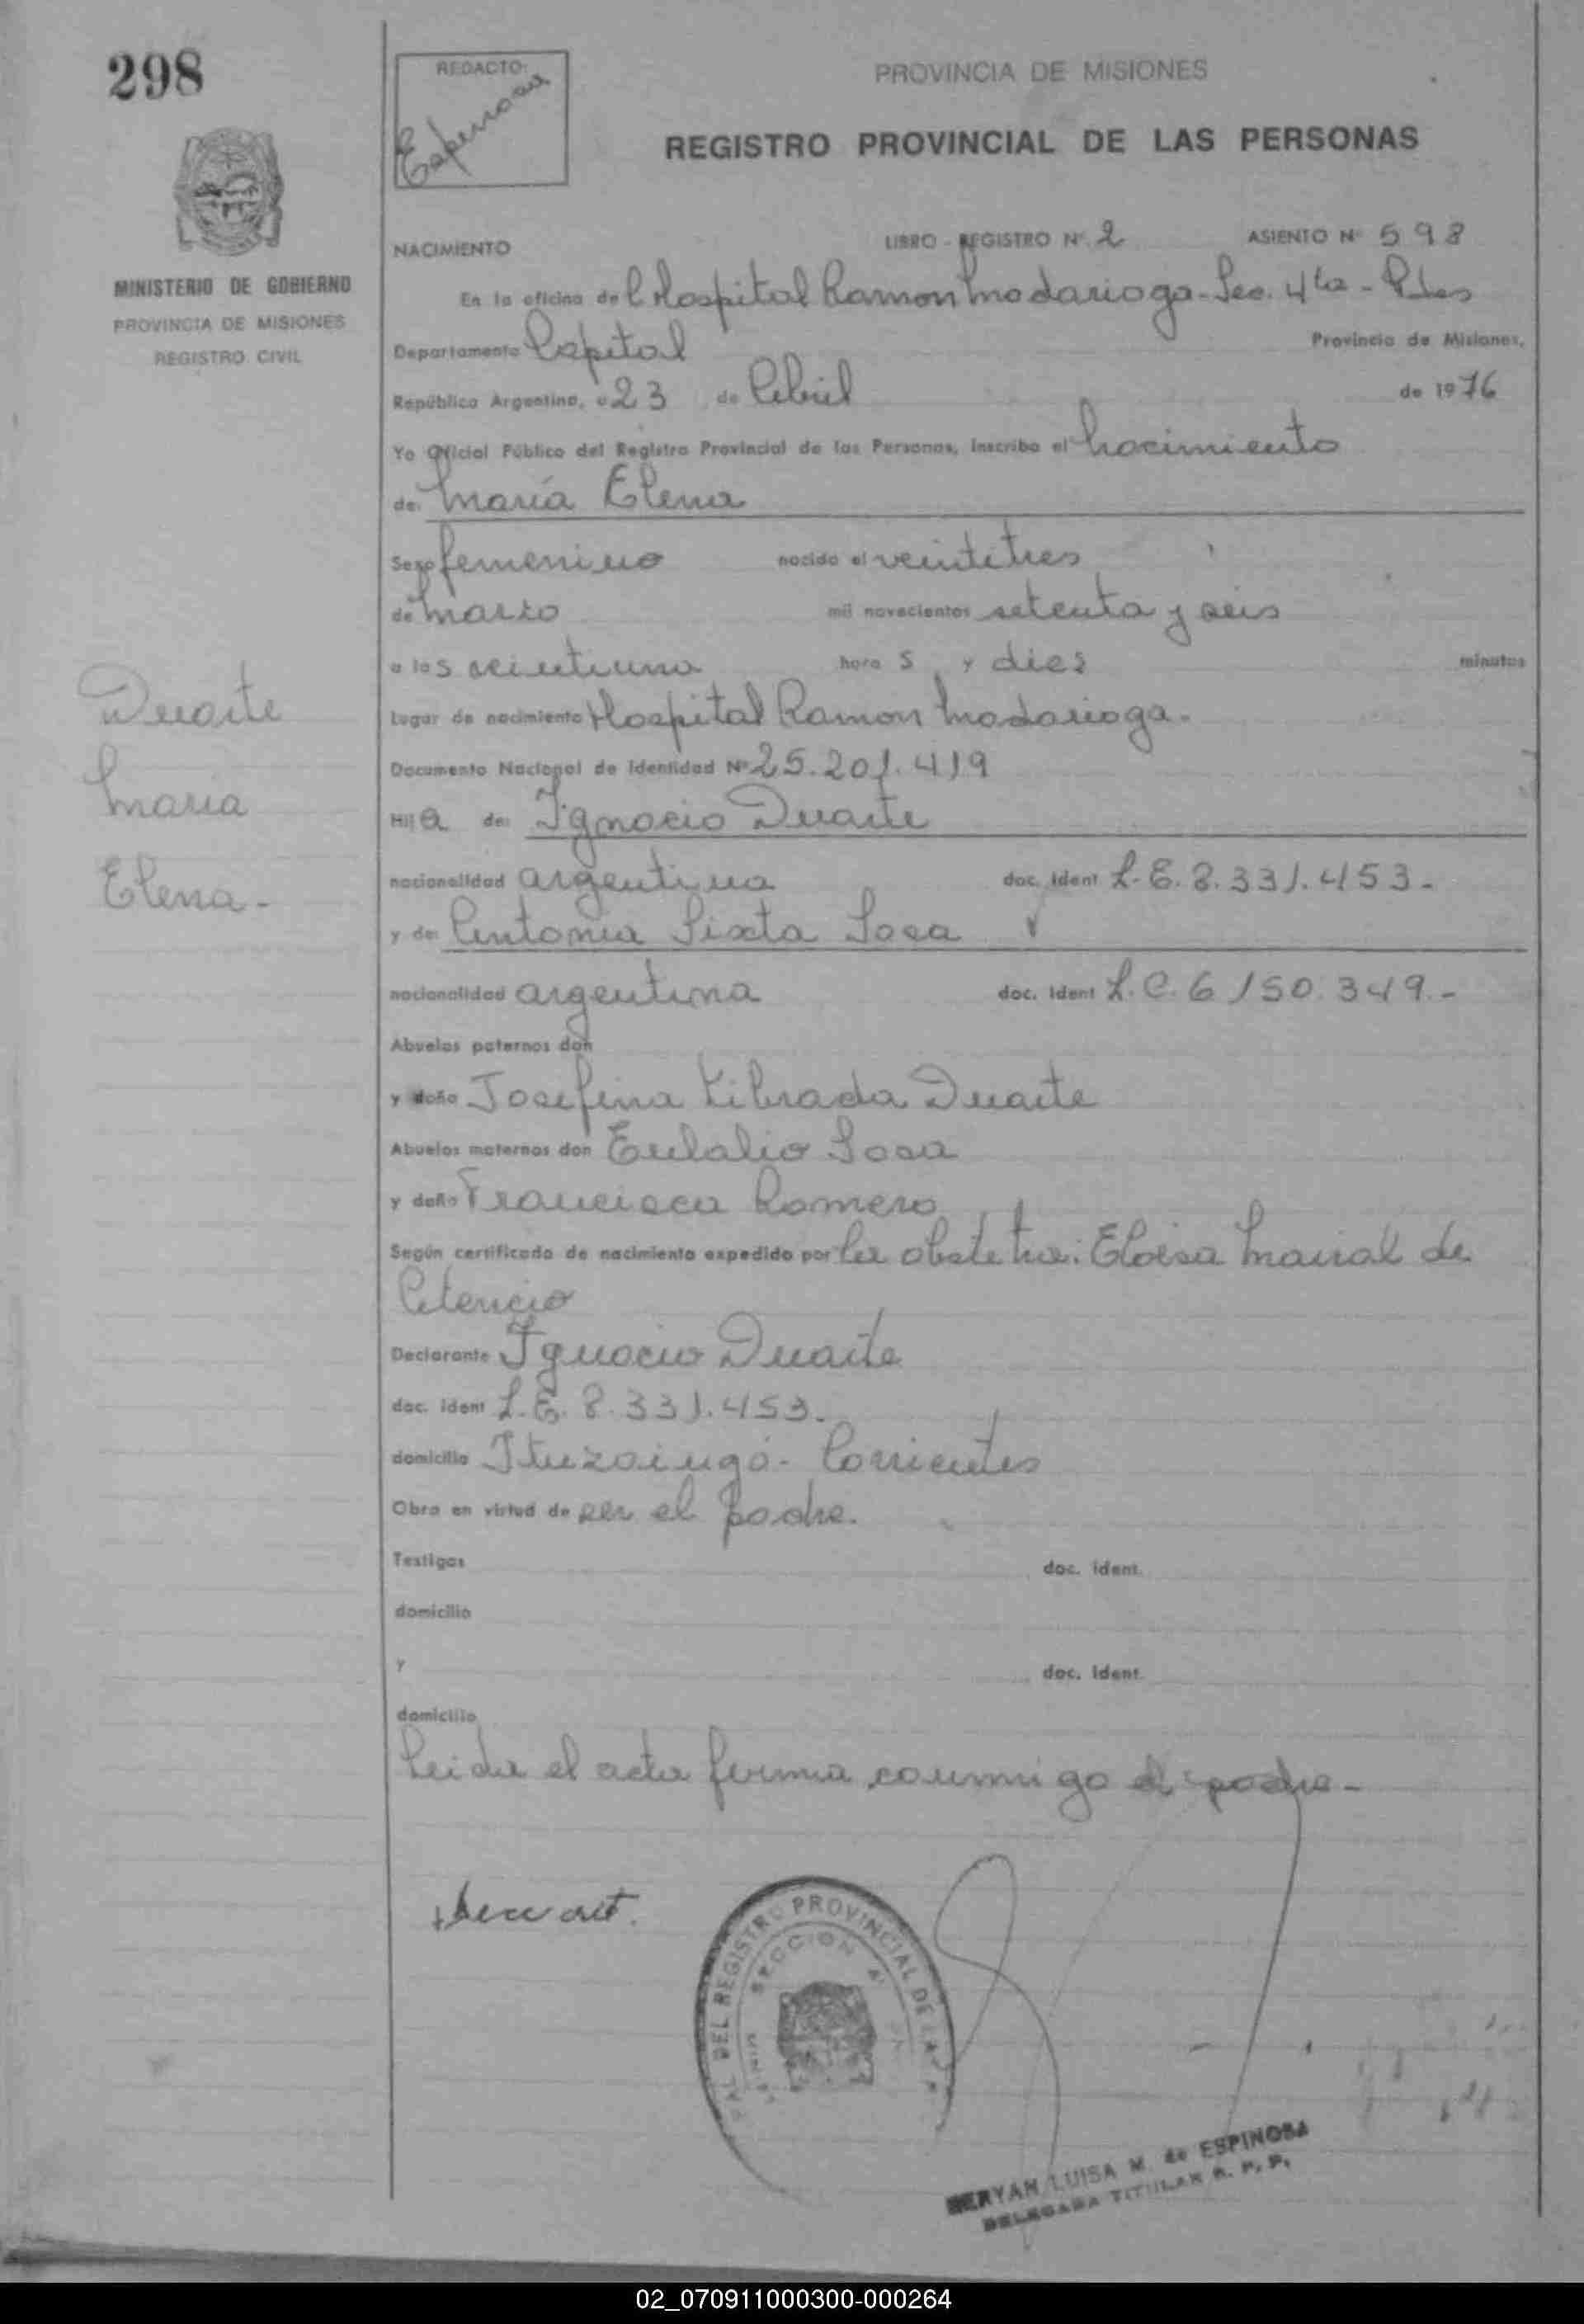 298
REDACTO:
Espinosa
PROVINCIA DE MISIONES
REGISTRO PROVINCIAL DE LAS PERSONAS
MINISTERIO DE GOBIERNO
PROVINCIA DE MISIONES
REGISTRO CIVIL
NACIMIENTO LIBRO - REGISTRO Nº 2 ASIENTO Nº 598
En la oficina del Hospital Ramon Madariaga - Sec. 4ta - Pdas
Departamento Capital Provincia de Misiones,
República Argentina, a 23 de Abril de 1976
Yo Oficial Público del Registro Provincial de las Personas, inscribo el nacimiento
de: María Elena
Sexo femenino nacido el veintitres
de marzo mil novecientos setenta y seis
a las veintiuna horas y dies minutos
Lugar de nacimiento Hospital Ramon Madariaga.
Documento Nacional de Identidad Nº 25.201.419
Hija de: Ignacio Duarte
nacionalidad argentina doc. ident L.E. 8.331.453.-
y de: Antonia Sixta Sosa
nacionalidad argentina doc. ident L.C. 6150.349.-
Abuelos paternos don
y doña Josefina Librada Duarte
Abuelos maternos don Eulalio Sosa
y doña Francisca Romero
Según certificado de nacimiento expedido por la obstetra: Eloisa de
Atencio
Declarante Ignacio Duarte
doc. ident L.E. 8.331.453.
domicilio Ituzaingó - Corrientes
Obra en virtud de ser el padre.
Testigos doc. ident.
domicilio
y doc. ident.
domicilio
Leida el acta firma conmigo el padre -
Duarte
Maria
Elena -
DEL REGISTRO PROVINCIAL DE LA
SECCION 4ª
LUISA M. de ESPINOSA
DELEGADA TITULAR R. P. P.
02_070911000300-000264